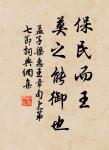 保民而王
莫之能御也
孟子梁惠王章句上第
七節詞典網集